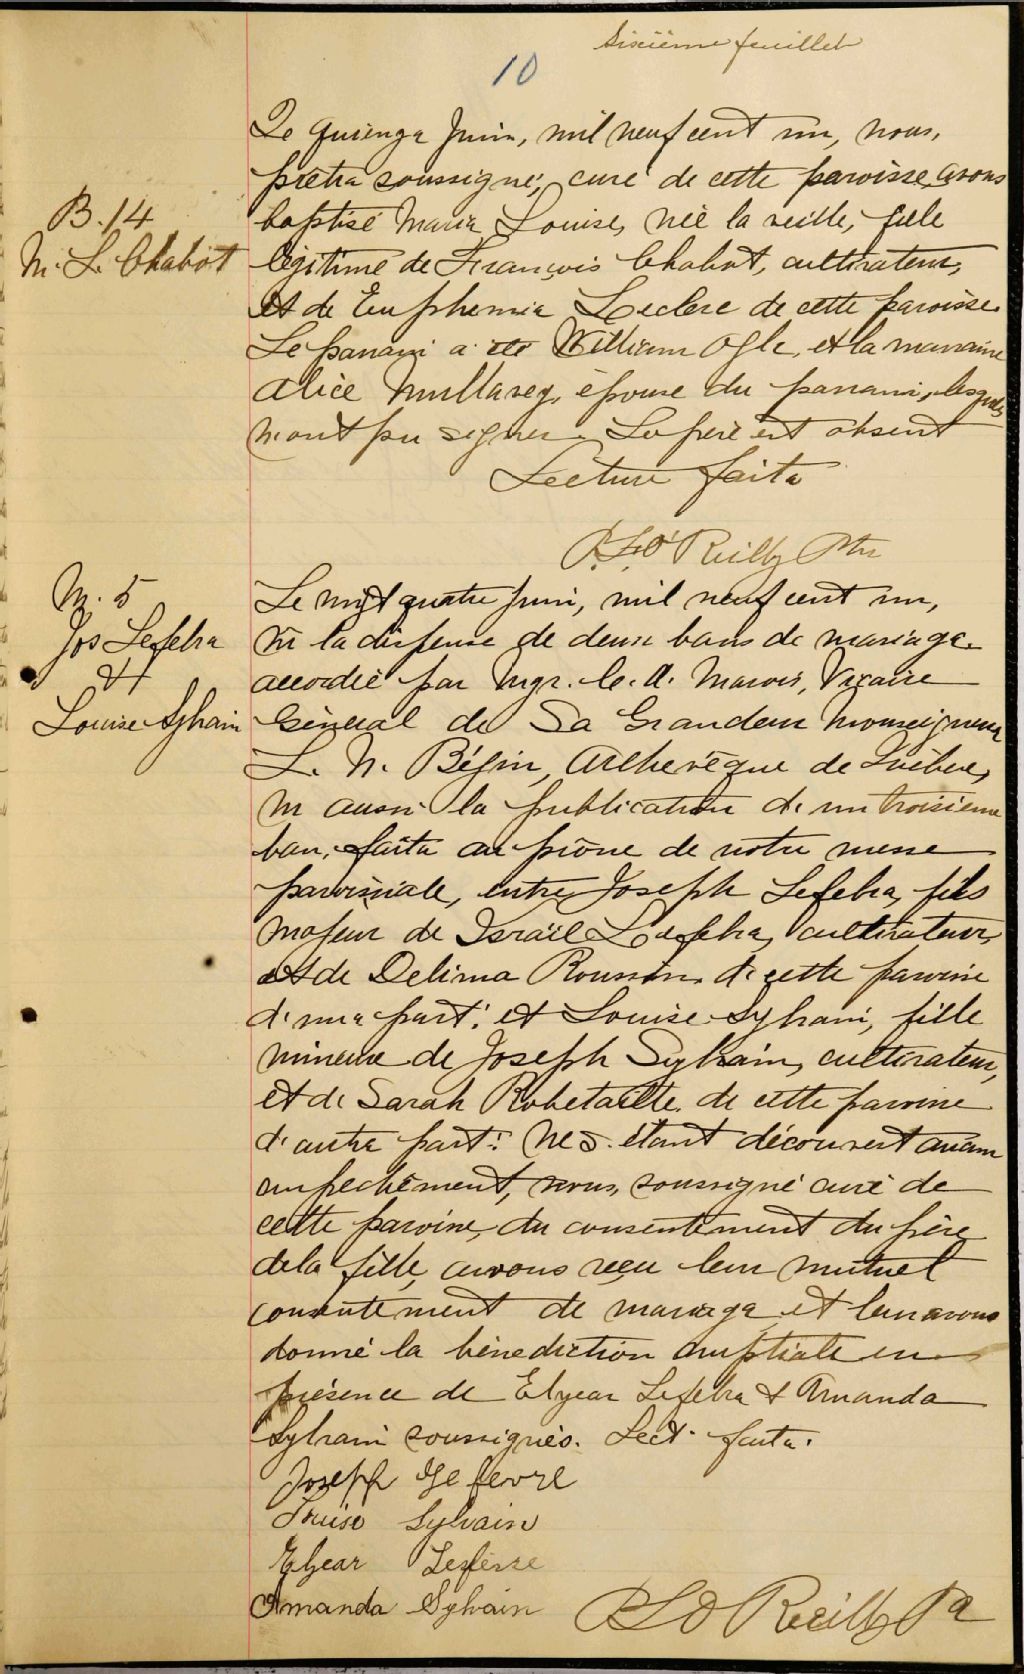 Sixième feuillet
10
Le quinze Juin, mil neuf cent un, nous,
prêtre soussigné, curé de cette paroisse avons
B. 14
baptisé Marie Louise, née la veille, fille
M. L. Chabot
légitime de François Chabot, cultivateur,
et de Euphemie Leclerc de cette paroisse.
Le parrain a été William Ogle, et la marraine
Alice Mullavey, épouse du parrain, lesquels
n'ont pu signer. Le père est absent
Lecture faite
P. J. O'Reilly Ptre
M. 5
Le vingt quatre Juin, mil neuf cent un,
Jos Lefebre
vu la dispense de deux bans de mariage
&
accordée par Mgr. C. A. Marois, Vicaire
Louise Sylvain
Général de Sa Grandeur Monseigneur
L. N. Bégin, Archevêque de Québec,
vu aussi la publication de un troisième
ban, faite au prône de notre messe
paroissiale, entre Joseph Lefebre, fils
majeur de Israël Lefebre, cultivateur,
et de Delima Roussin, de cette paroisse
d'une part: et Louise Sylvain, fille
mineure de Joseph Sylvain, cultivateur,
et de Sarah Robetaille de cette paroisse
d'autre part: Ne s'étant découvert aucun
empêchement, nous, soussigné curé de
cette paroisse, du consentement du père
de la fille, avons reçu leur mutuel
consentement de mariage et leur avons
donné la bénédiction nuptiale en
présence de Elzear Lefebre & Amanda
Sylvain soussignés. Lect. faite.
Joseph Lefevre
Louise Sylvain
Elzear Lefevre
Amanda Sylvain
P J O'Reilly Ptr